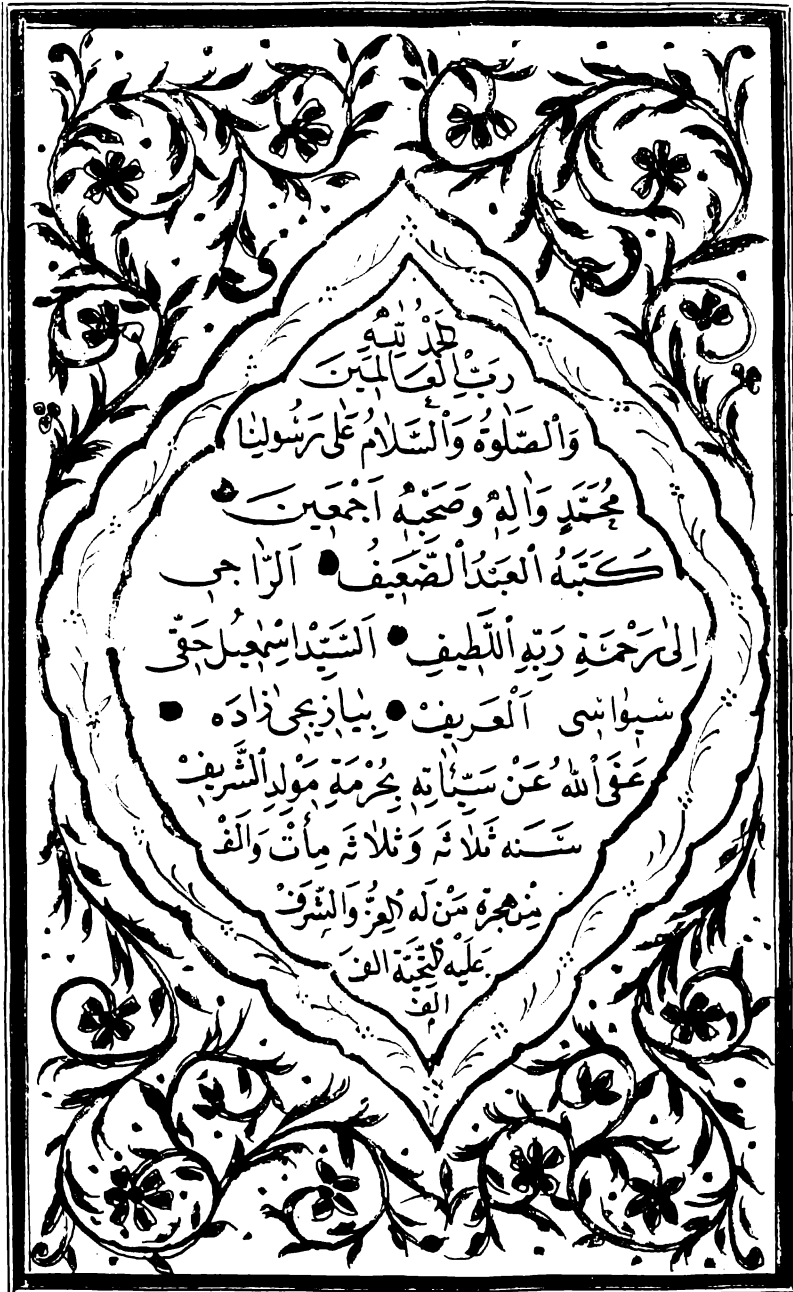 اَلْحَمْدُ لِلّٰهِ
رَبِّ الْعَالَمِينَ
وَالصَّلٰوةُ وَالسَّلَامُ عَلٰى رَسُولِنَا
مُحَمَّدٍ وَاٰلِهِ وَصَحْبِهِ اَجْمَعِينَ
كَتَبَهُ الْعَبْدُ الضَّعِيفُ اَلرَّاجِى
اِلٰى رَحْمَةِ رَبِّهِ اللَّطِيفِ اَلسَّيِّدْ اِسْمٰعِيلْ حَقِّى
سيواسى اَلْعَرِيفْ بِيَازيجى زَادَه
عَفَى اللهُ عَنْ سَيِّئَاتِهِ بِحُرْمَةِ مَوْلِدِ الشَّرِيفْ
سَنَه ثَلَاثَه وَثَلَاثَه مِأَتْ وَاَلْفْ
مِنْ هِجْرَةِ مَنْ لَهُ الْعِزُّ وَالشَّرَفْ
عَلَيْهِ التَّحِيَّةُ الفَ
الف